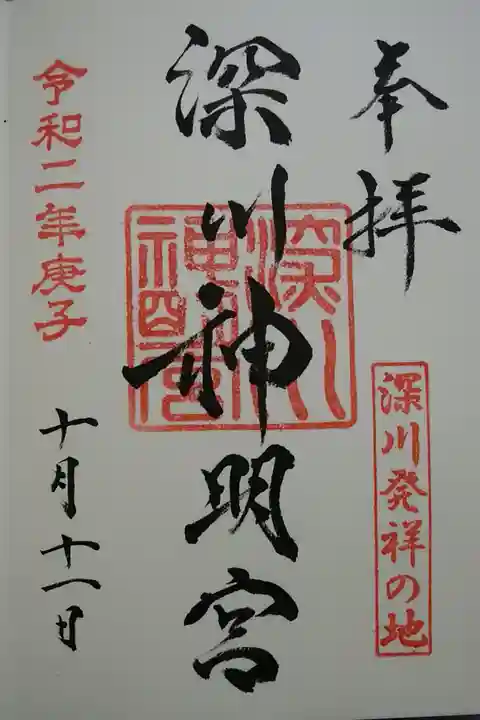 奉拝
深川発祥の地
深川神明宮
深川神明宮
令和二年庚子
十月十一日